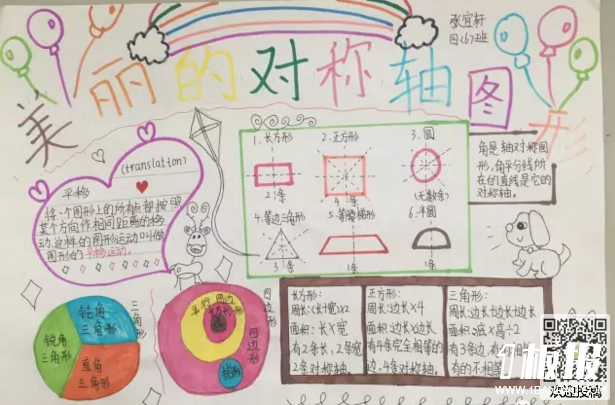 美丽的对称轴图形
张宜轩
四(6)班
(translation)
平移
将一个图形上的所有点都按照
某个方向作相同距离的移
动,这样的图形运动叫做
图形的平移运动。
1.长方形
2.正方形
3.圆
2条
4条
(无数条)
4.等边三角形
5.等腰梯形
6.半圆
3条
1条
1条
角是轴对称图
形,角平分线所
在的直线是它的
对称轴。
钝角
三角形
锐角
三角形
直角
三角形
三角形
四边形
平行四边形
梯形
四边形
长方形:
周长:(长+宽)×2
面积:长×宽
有2条长,2条宽
2条对称轴。
正方形:
周长:边长×4
面积:边长×边长
有4条完全相等的
边,4条对称轴。
三角形:
周长:边长+边长+边长
面积:底×高÷2
有3条边,有
的不相等